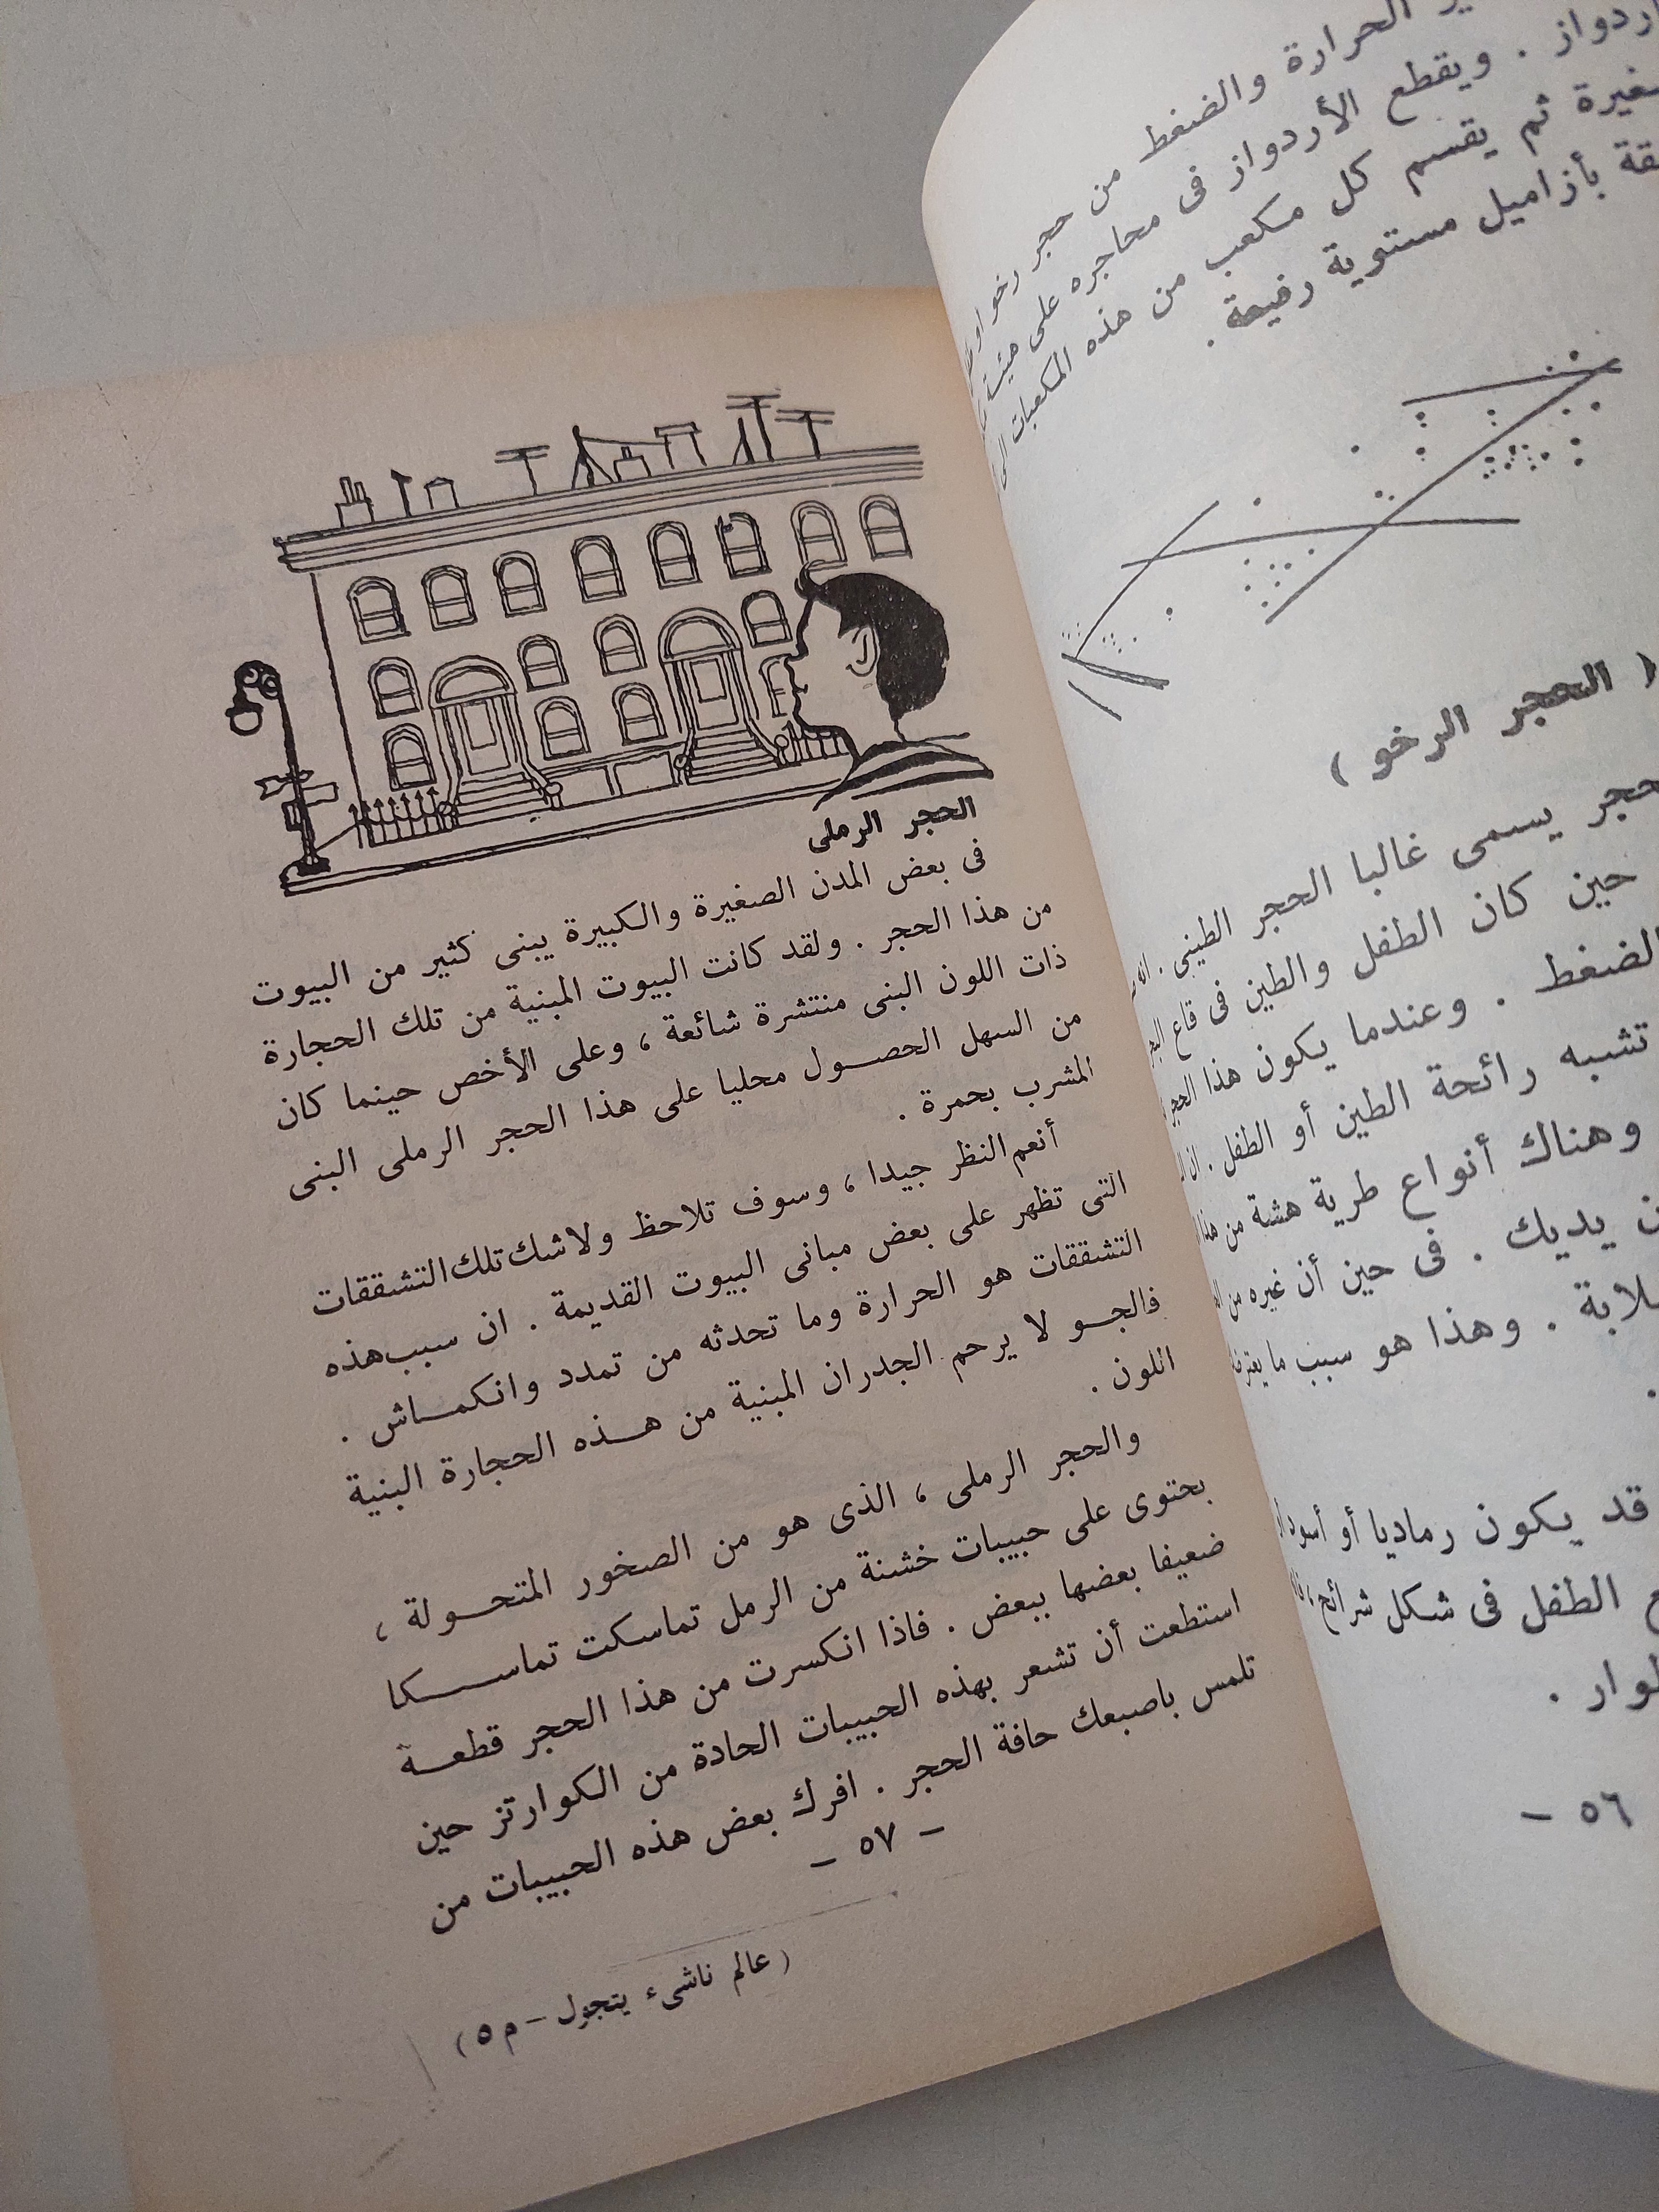 الحرارة والضغط من حجر رخو او
. ويقطع الأردواز فى محاجره على هيئة
ثم يقسم كل مكعب من هذه المكعبات
بأزاميل مستوية رفيعة .
( الحجر الرخو )
يسمى غالبا الحجر الطينى . انه
حين كان الطفل والطين فى قاع البحر
. وعندما يكون هذا الحجر
تشبه رائحة الطين أو الطفل . ان
وهناك أنواع طرية هشة من هذا
يديك . فى حين أن غيره من
. وهذا هو سبب ما
قد يكون رماديا أو أسود
الطفل فى شكل شرائح ،
٥٦ –
الحجر الرملى
فى بعض المدن الصغيرة والكبيرة يبنى كثير من البيوت
من هذا الحجر . ولقد كانت البيوت المبنية من تلك الحجارة
ذات اللون البنى منتشرة شائعة ، وعلى الأخص حينما كان
من السهل الحصول محليا على هذا الحجر الرملى البنى
المشرب بحمرة .
أنعم النظر جيدا ، وسوف تلاحظ ولاشك تلك التشققات
التى تظهر على بعض مبانى البيوت القديمة . ان سبب هذه
التشققات هو الحرارة وما تحدثه من تمدد وانكماش .
فالجو لا يرحم الجدران المبنية من هذه الحجارة البنية
اللون .
والحجر الرملى ، الذى هو من الصخور المتحولة ،
يحتوى على حبيبات خشنة من الرمل تماسكت تماسكا
ضعيفا بعضها ببعض . فاذا انكسرت من هذا الحجر قطعة
استطعت أن تشعر بهذه الحبيبات الحادة من الكوارتز حين
تلمس باصبعك حافة الحجر . افرك بعض هذه الحبيبات من
– ٥٧ –
( عالم ناشىء يتجول – م ٥ )